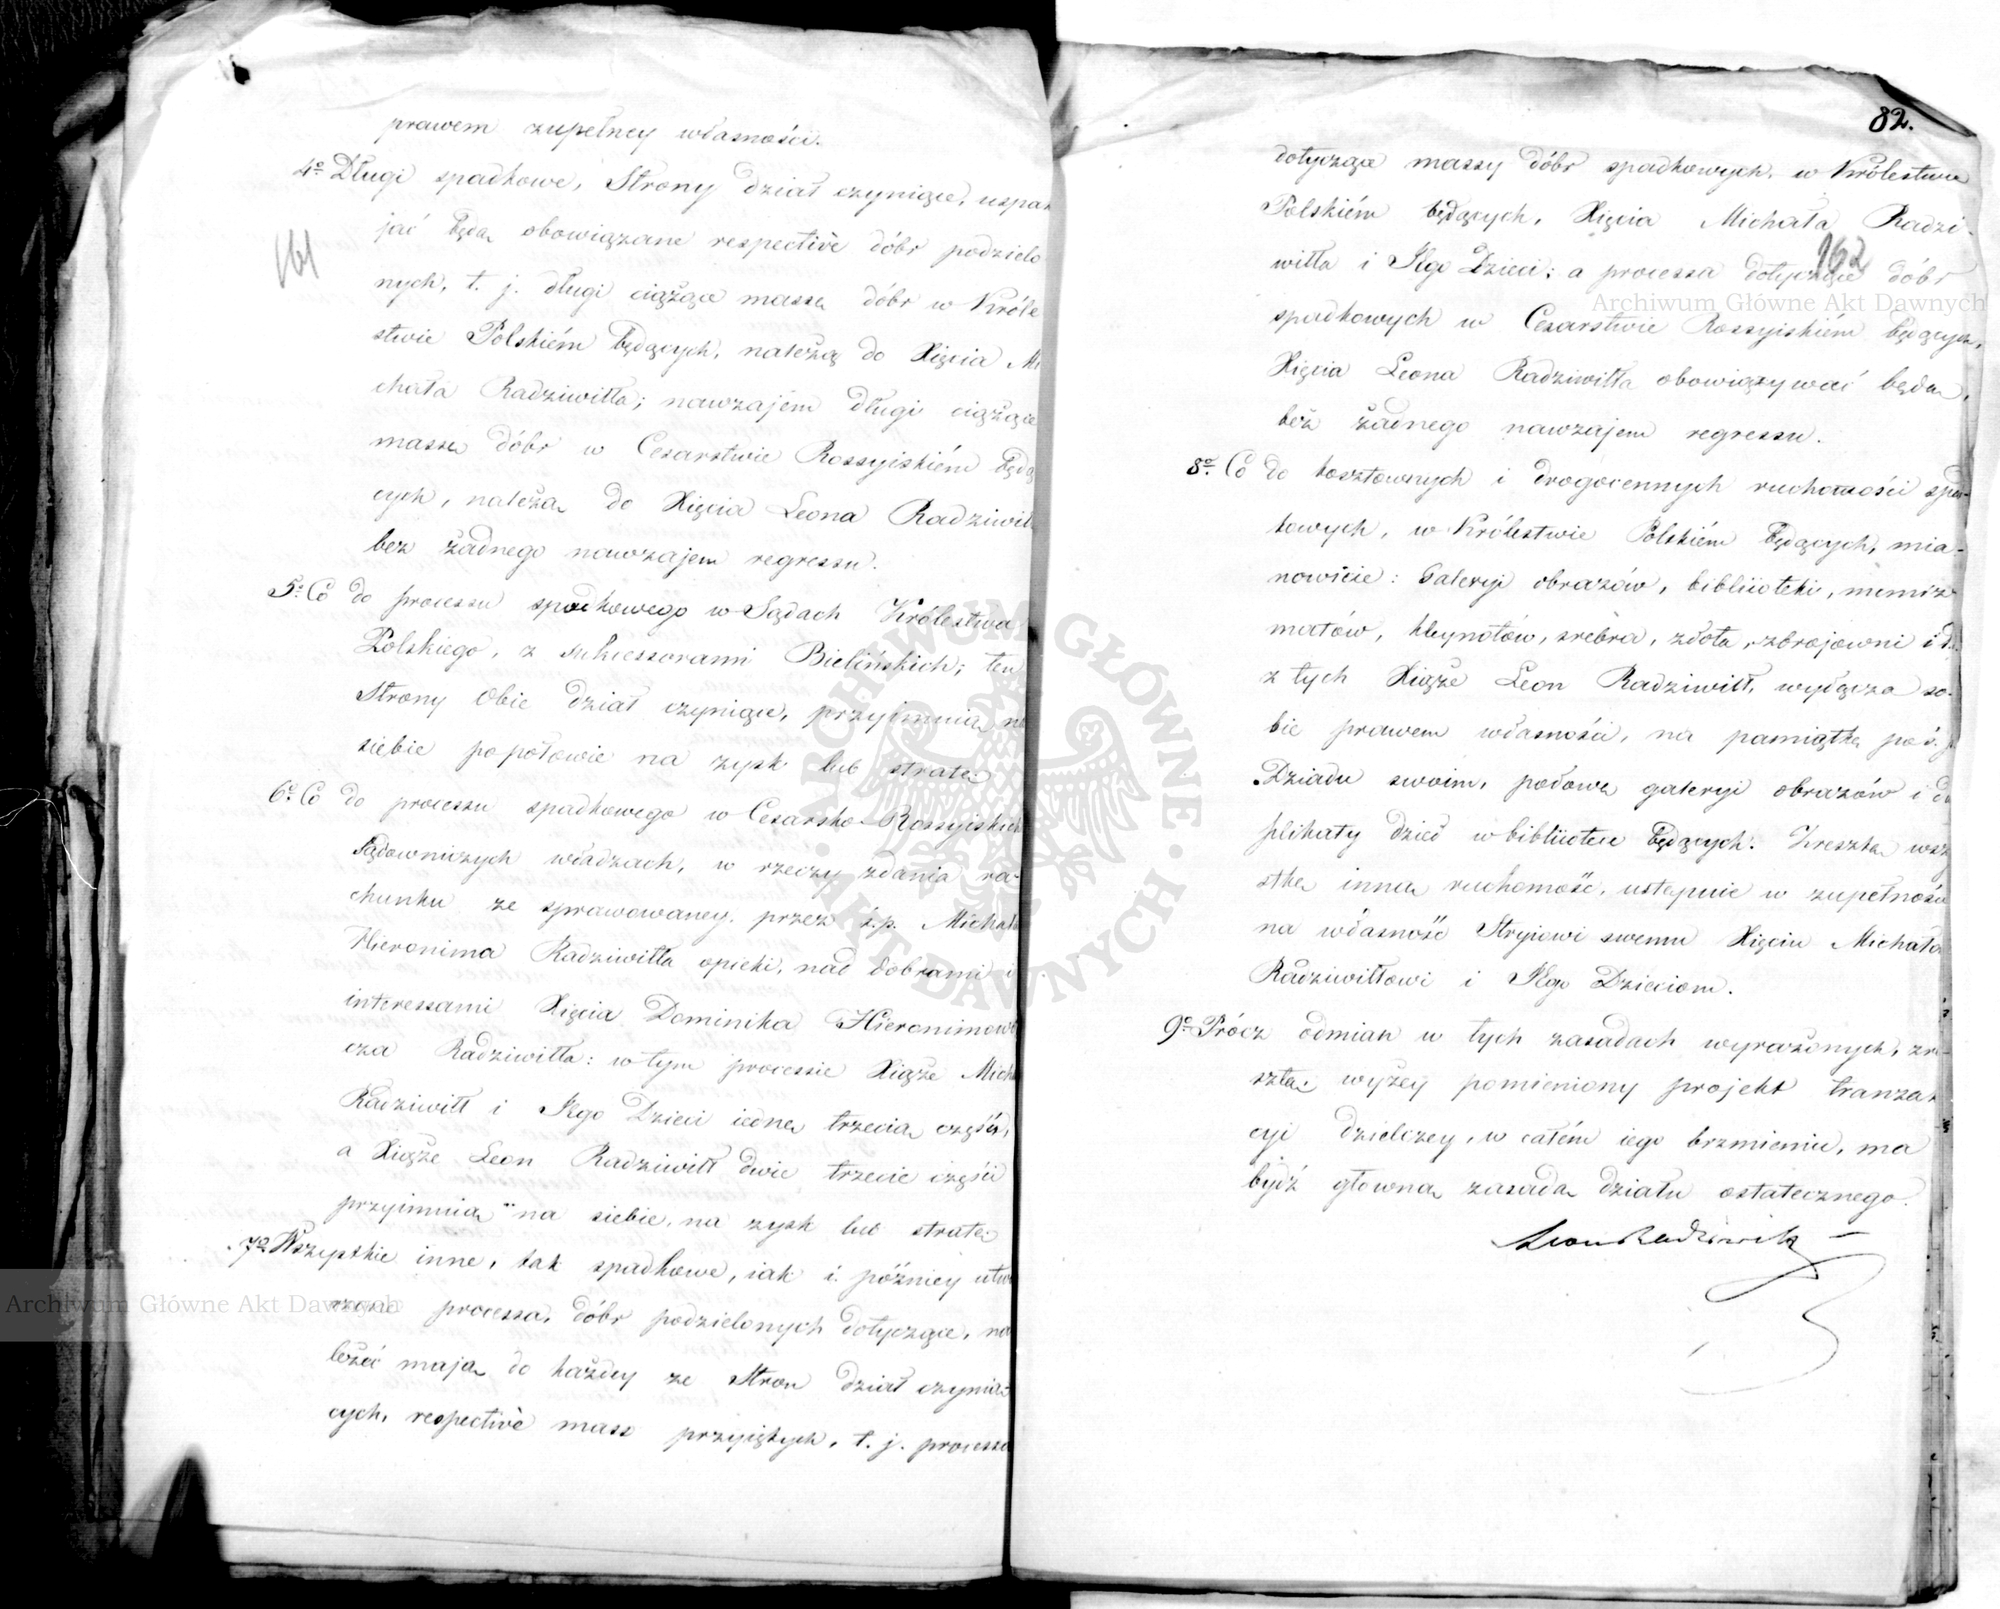 prawem zupełney własności.
4o Długi spadkowe, Strony dział czyniące, uspak
jać będą obowiązane respectivè dóbr podzielo
nych, t. j. długi ciążące massę dóbr w Króle
stwie Polskiém będących, należą do Xięcia Mi
chała Radziwiłła; nawzajem długi ciążące
massę dóbr w Cesarstwie Rossyiskiém będą
cych, należą do Xięcia Leona Radziwił
bez żadnego nawzajem regressu.
161
5o Co do processu spadkowego w Sądach Królestwa
Polskiego, z sukcessorami Bielińskich; ten
Strony Obie dział czyniące, przyimuią na
siebie po połowie na zysk lub stratę.
6o Co do processu spadkowego w Cesarsko-Rossyiskich
Sądowniczych władzach, w rzeczy zdania ra-
chunku ze sprawowaney, przez ś.p. Michała
Hieronima Radziwiłła opieki, nad dobrami i
interessami Xięcia Dominika Hieronimowi
cza Radziwiłła: w tym processie Xiąże Micha
Radziwiłł i Jego Dzieci iednę trzecią część,
a Xiąże Leon Radziwiłł dwie trzecie części
przyimuią na siebie, na zysk lub stratę.
7o Wszystkie inne, tak spadkowe, iak i późniey utwo
rzone processa, dóbr podzielonych dotyczące, na
leżeć mają do każdey ze Stron dział czynią
cych, respectivè mass przyiętych, t. j. processa
82.
dotyczące massy dóbr spadkowych, w Królestwie
Polskiém będących, Xięcia Michała Radzi-
wiłła i Jego Dzieci; a processa dotyczące dóbr
162
spadkowych w Cesarstwie Rossyiskiém będących,
Xięcia Leona Radziwiłła obowiązywać będą,
bez żadnego nawzajem regressu.
8o Co do kosztownych i drogocennych ruchomości spad-
kowych, w Królestwie Polskiém będących, mia-
nowicie: Galeryi obrazów, biblioteki, numiz
matów, kleynotów, srebra, złota, zbrojowni i t.d.
z tych Xiąże Leon Radziwiłł, wyłącza so-
bie prawem własności, na pamiątkę po ś. p.
Dziadu swoim, połowę galeryi obrazów i du
plikaty dzieł w bibliotece będących. Zresztą wszy
stką inną ruchomość, ustępuie w zupełności
na własność Stryiowi swemu Xięciu Michało
Radziwiłłowi i Jego Dzieciom.
9o Prócz odmian w tych zasadach wyrażonych, zre-
sztą wyżey pomieniony projekt tranzak
cyi dzielczey, w całém iego brzmieniu, ma
bydź główną zasadą działu ostatecznego.
Leon Radziwiłł
Archiwum Główne Akt Dawnych
Archiwum Główne Akt Dawnych
ARCHIWUM GŁÓWNE AKT DAWNYCH